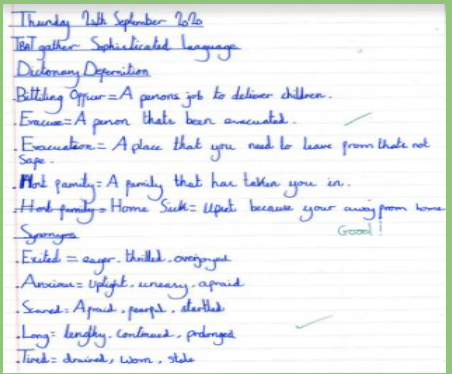 Thursday 24th September 2020
TBAT gather Sophisticated language
Dictonary Defernition
.Bittiling Officer = A persons job to deliver children.
.Evacuee = A person thats been evacuated.
.Evacuation = A place that you need to leave from thats not
safe.
.Host family = A family that has taken you in.
.Host family = Home Sick = Upset because your away from home
Good!
Synonyms
.Exited = eager, thrilled, overjoyed
.Anxious = uptight, uneasy, afraid
.Scared = Afraid, fearful, startled
.Long = lengthy, continued, prolonged
.Tired = drained, worn, stale